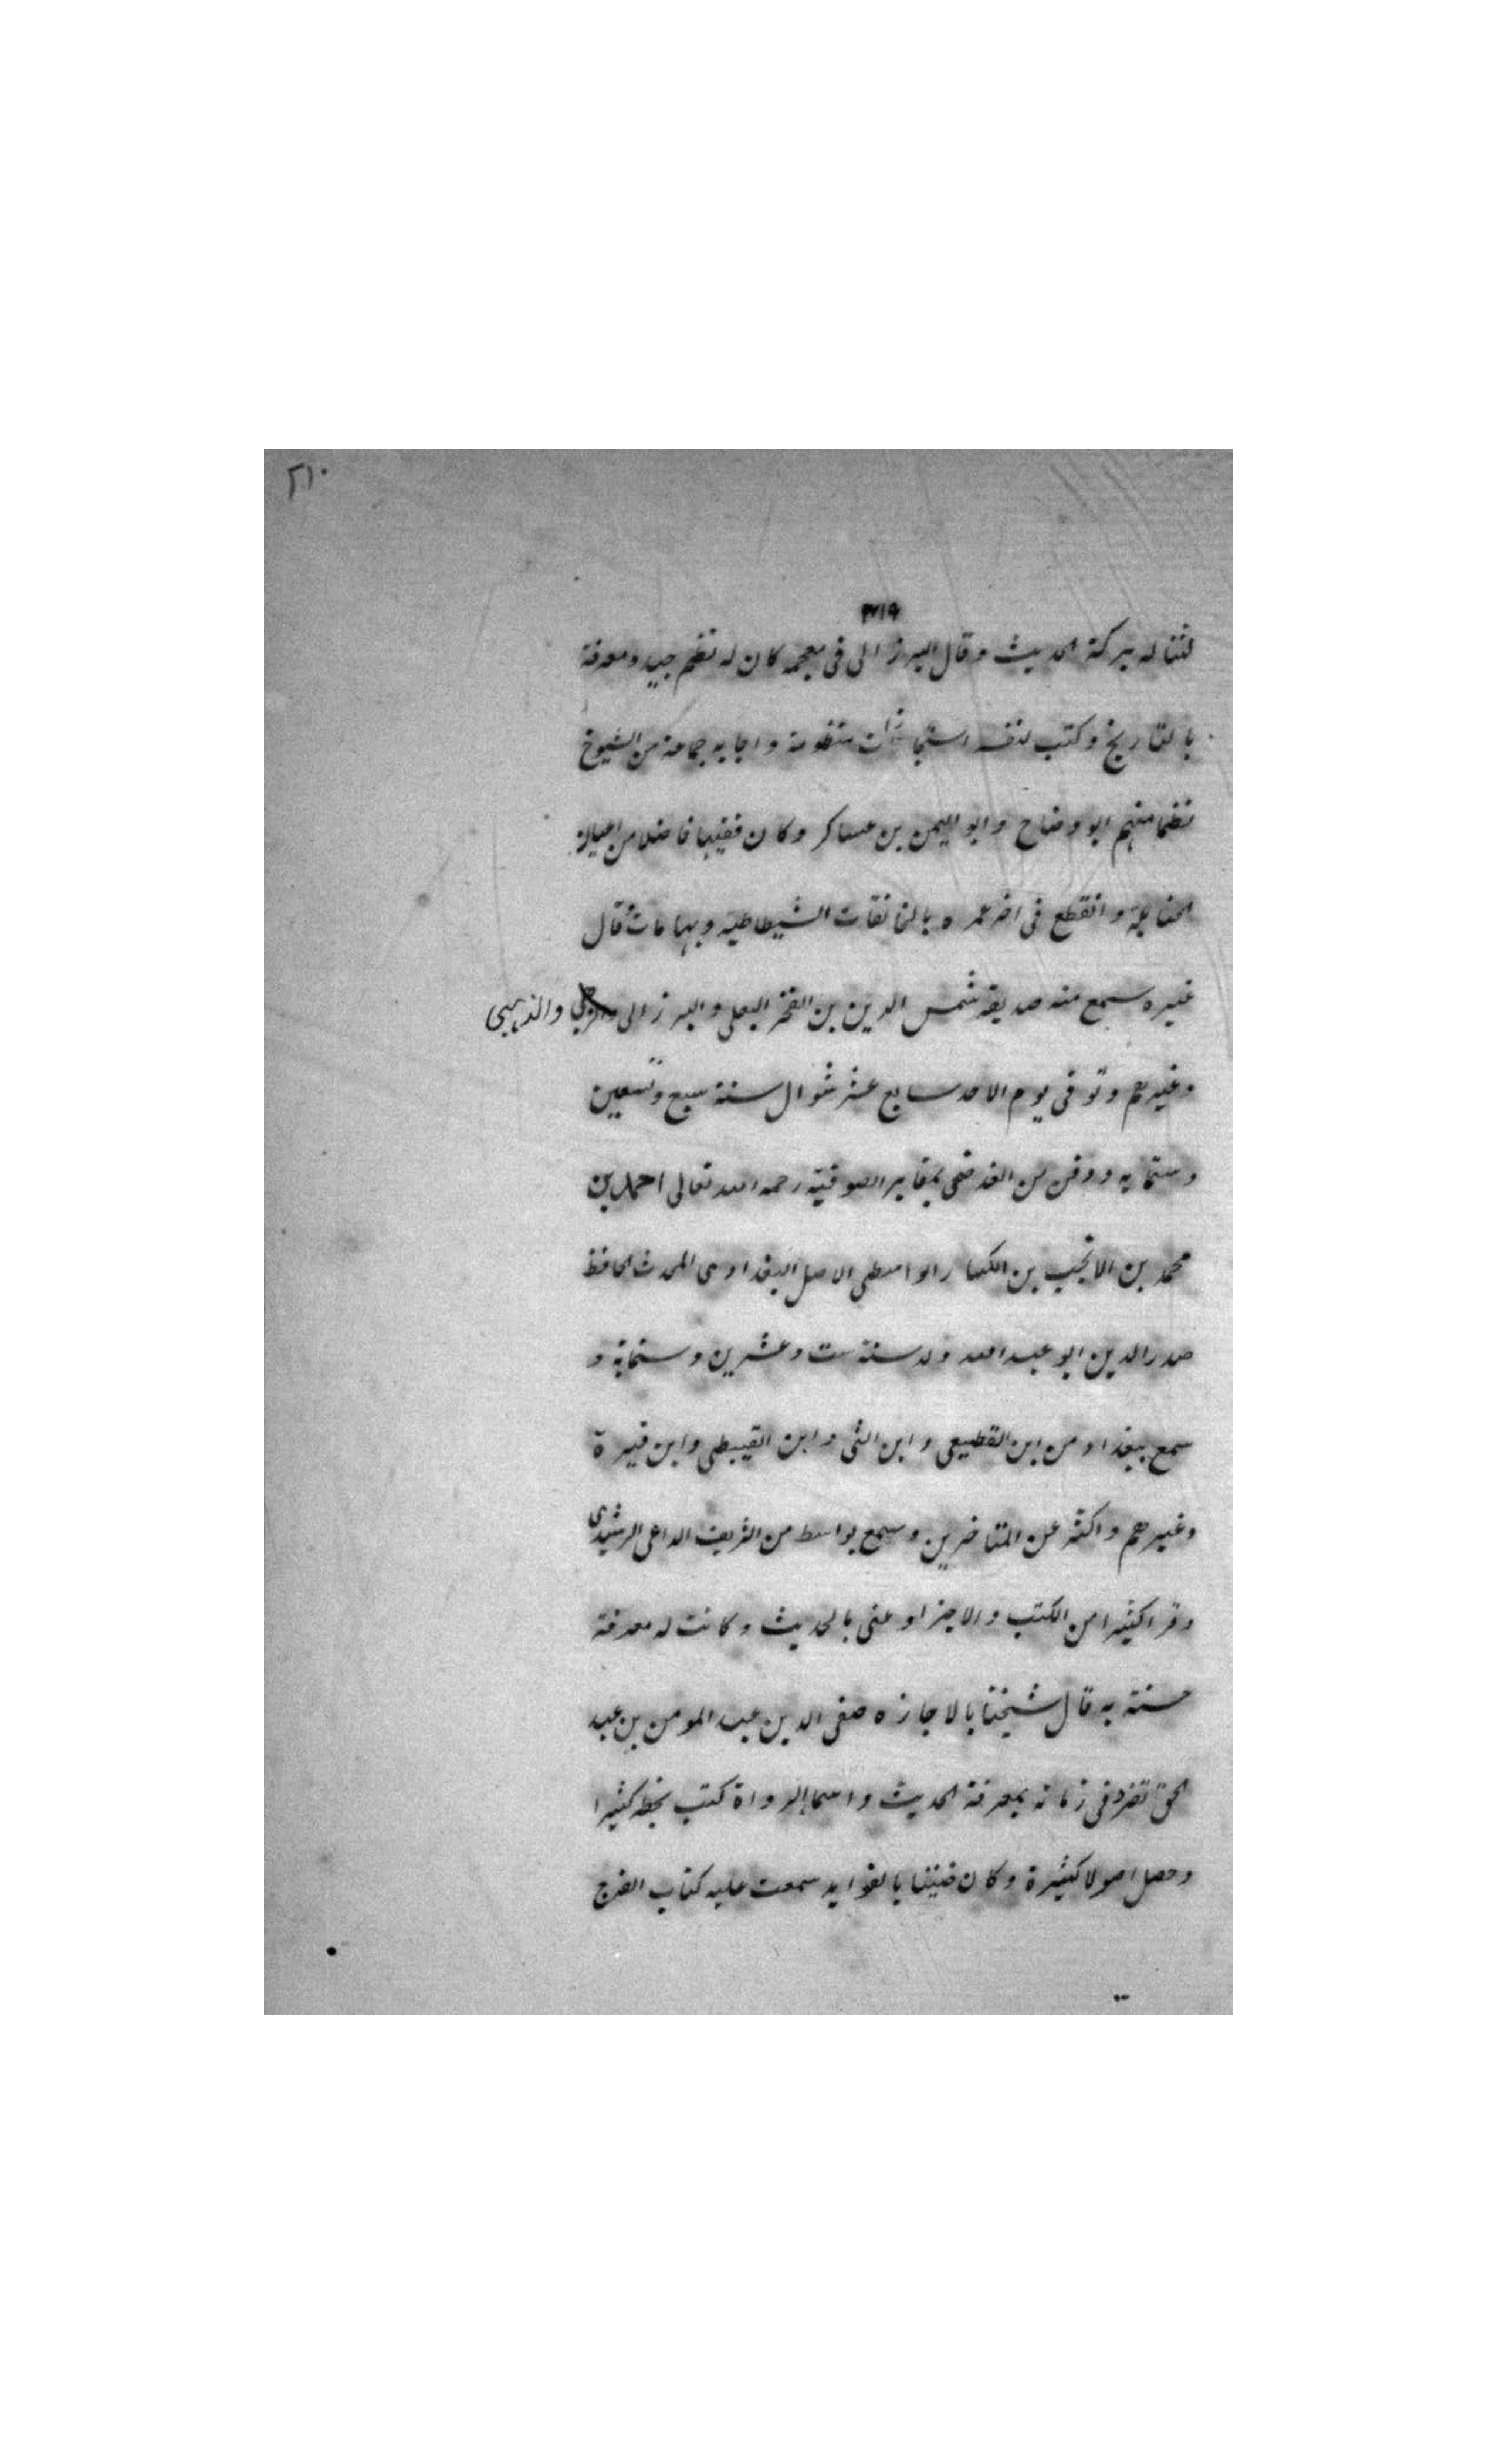 ٢١٠
٣١٩
لثناله ببركة الحديث وقال البرزالى فى معجمه كان له نظم جيد ومعرفة
بالتاريخ وكتب لنفسه استجازات منظومة واجابه جماعة من الشيوخ
نظما منهم ابو وضاح وابو اليمن بن عساكر وكان فقيها فاضلا من اعيان
الحنابلة وانقطع فى اخر عمره بالخانقات الشيطاطيه وبها مات قال
غيره سمع منه صديقه شمس الدين بن الفخر البعلى والبرزالى والذهبى
وغيرهم وتوفى يوم الاحد سابع عشر شوال سنة سبع وتسعين
وستمايه ودفن من الغد ضحى بمقابر الصوفيه رحمه الله تعالى احمد بن
محمد بن الانجب بن الكسار الواسطى الاصل البغدادى المحدث الحافظ
صدر الدين ابو عبد الله ولد سنة ست وعشرين وستماية و
سمع ببغداد من ابن القطيعى وابن التى وابن القبيطى وابن قيرة
وغيرهم واكثر عن المتاخرين وسمع بواسط من الشريف الداعى الرشيدى
وقرا كثيرا من الكتب والاجزا وعنى بالحديث وكانت له معرفة
حسنة به قال شيخنا بالاجازه صفى الدين عبد المومن بن عبد
الحق تفرد فى زمانه بمعرفة الحديث واسما الرواة كتب بخطه كثيرا
وحصل اصولا كثيرة وكان ضنينا بالفوايد سمعت عليه كتاب الفرج